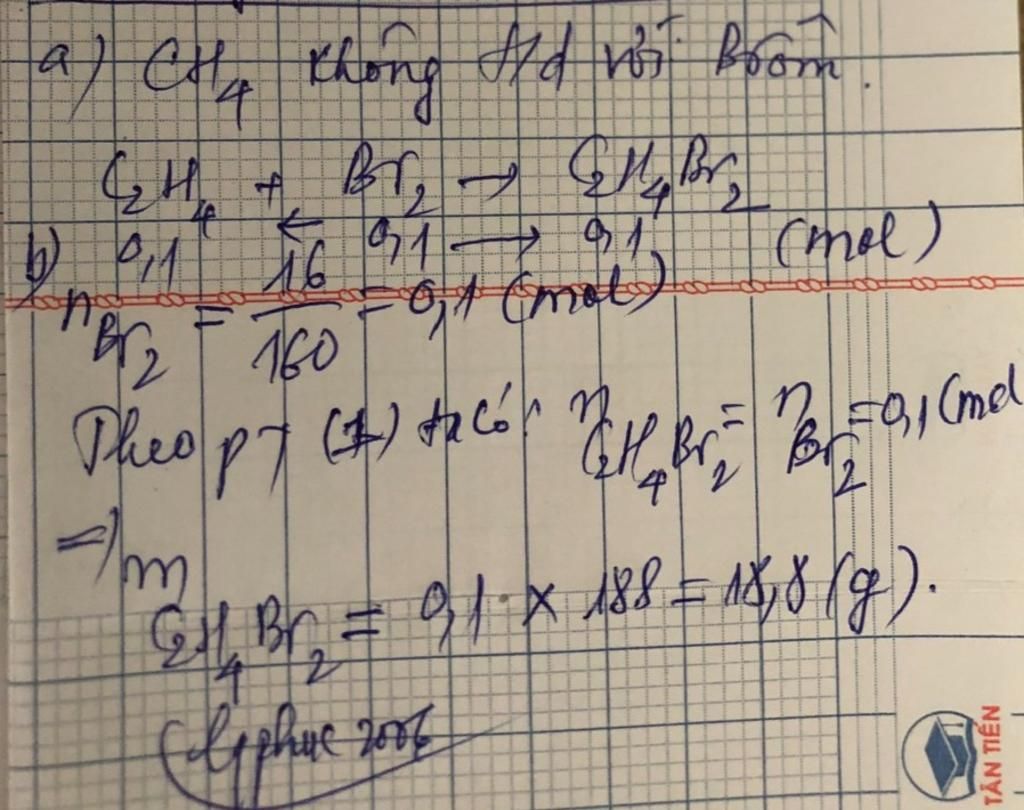 a) CH₄ không t/d với Brôm.
C₂H₄ + Br₂ → C₂H₄Br₂
b) 0,1 ← 0,1 → 0,1 (mol)
n Br₂ = 16/160 = 0,1 (mol)
Theo pt (1) ta có: n C₂H₄Br₂ = n Br₂ = 0,1 (mol
=) m C₂H₄Br₂ = 0,1 × 188 = 18,8 (g).
2006
TÂN TIẾN